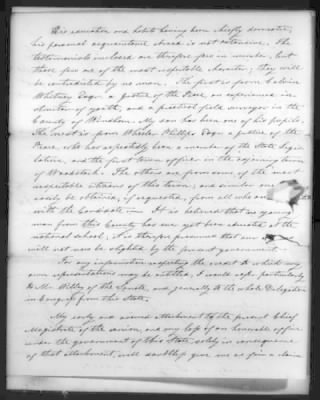 His education and habits having been chiefly domestic,
his personal acquaintance abroad is not extensive. The
testimonials inclosed are therefore few in number, but
those few are of the most respectable character; they will
be contradicted by no man. The first is from Calvin
Whitney Esqr. a justice of the Peace, an experienced in-
structor of youth, and a practical field surveyor in the
County of Windham. My son has been one of his pupils.
The next is from Wheeler Phillips Esqr. a justice of the
Peace, who has repeatedly been a member of the State Legis-
lature, and the first town officer in the adjoining town
of Woodstock. The others are from some of the most
respectable citizens of this town; and similar ones
easily be obtained, if requested, from all who are
with the Candidate. It is believed that no young
man from this County has ever yet been educated at the
national school; it is therefore presumed that our
will not now be slighted by the present government.
For any information respecting the credit to which my
own representations may be entitled, I would refer particularly
to Mr. of the Senate, and generally to the whole Delegation
in Congress from this State.
My early and avowed attachment to the present Chief
Magistrate of the Union, and my loss of an honorable office
under the government of this State, solely in consequence
of that attachment, will doubtless give me as fair a claim